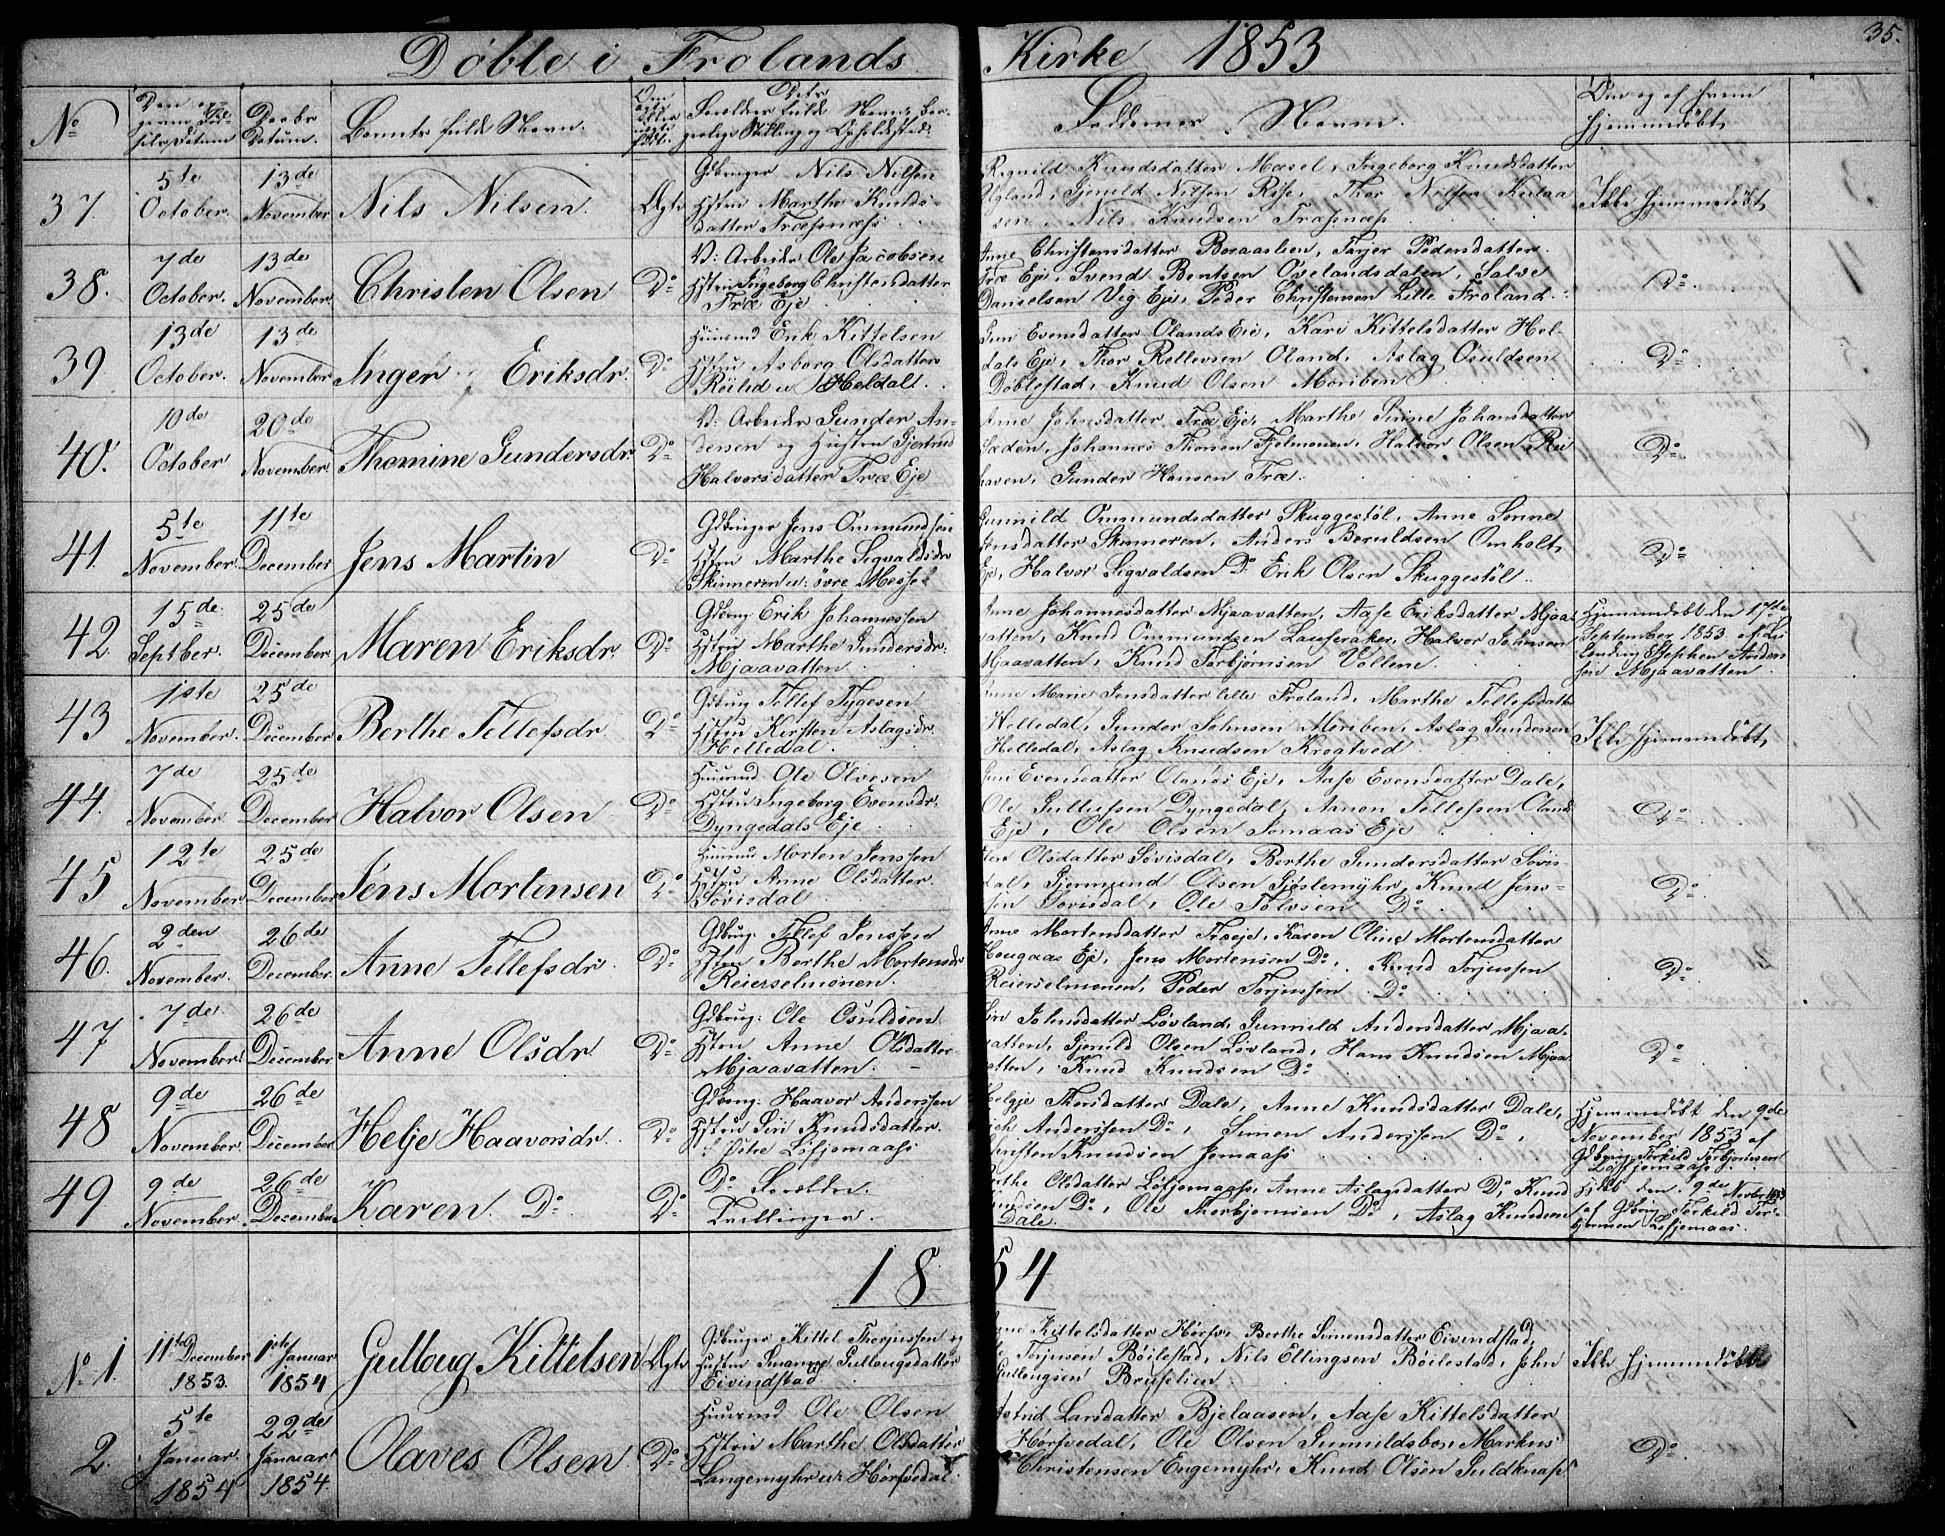 Døbte i Frolands Kirke 1853
35.
No
Barnets fulde Navn.
Faddernes Navne.
Om og af hvem
hjemmedøbt
37.
5te
October.
13de
November
Nils Nilsen
Ægte
Gdbruger Nils Nilsen
Hstru Marthe Knuds-
datter Træsnæs
Ragnild Knudsdatter Mæsel, Ingeborg Knudsdatter
Ugland, Gjerulf Nilsen Rise, Thor Nilsen
Nils Knudsen Træsnæs
Ikke hjemmedøbt
38.
7de
October.
13de
November.
Christen Olsen
Do
V: Arbeider Ole Jacobsen
Hstru Ingeborg Christensdatter
Træ Eje
Anne Christensdatter Boraaslien, Tarjer Pedersdatter
Træ Eje, Svend Bentsen Øvelandsdalen, Salve
Danielsen Vig Eje, Peder Christensen Lille Froland.
Do
39
13de
October.
13de
November
Inger Eriksdr.
Do
Huusmd Erik Kittelsen
Hstru Asborg Olsdatter
u Heldal.
Guri Evensdatter Olands Eie, Kari Kittelsdatter Hel-
dals Eje, Thor Rollevsen Oland, Aslag Osuldsen
Døblestad, Knud Olsen Moriben
Do
40.
10de
October
20de
November.
Thomine Gundersdr.
Do
V: Arbeider Gunder An-
densen og Hustru Gjertrud
Halvorsdatter Træ Eje
Anne Johnsdatter Træ Eje, Marthe Sirine Johansdatter
Laden, Johannes Thorsen Fjelmonen, Halvor Olsen Rei
haven, Gunder Hansen Træ.
Do
41.
5te
November.
11te
December
Jens Martin
Do
Gdbruger Jens Ommundsen
Hstru Marthe Sigvaldsdr
Skinneren u. øvre Messel
Gunnild Ommundsdatter Skuggestøl, Anne Sonne
Jensdatter Skinneren, Anders Beruldsen Omholt
Eje, Halvor Sigvaldsen Do Erik Olsen Skuggestøl.
Do
42.
15de
Septber.
25de
December
Maren Eriksdr.
Do
Gdbrug Erik Johannessen
Hstru Marthe Gundersdr.
Mjaavatten
Anne Johannesdatter Mjaavatten, Aase Eriksdatter Mjaa-
vatten, Knud Ommundsen Lauveraker, Halvor Johnsen
Mjaavatten, Knud Torbjørnsen Vollene.
Hjemmedøbt den 17de
September 1853 af
Stephen Anders
sen Mjaavatten
43
1ste
November.
25de
December
Berthe Tellefsdr.
Do
Gdbrug Tellef Tygesen
Hstru Kirsten Aslagsdr
Helledal.
Anne Marie Jensdatter lille Froland, Marthe Tellefsdatter
Helledal, Gunder Johnsen Moriben, Aslag Gundersen
Helledal, Aslag Knudsen Krogtved
Ikke hjemmedøbt
44.
7de
November
25de
December
Halvor Olsen
Do
Huusmd Ole Olvesen
Hstru Ingeborg Evensdr.
Dyngedals Eje
Evensdatter Olands Eje, Aase Evensdatter Dale,
Ole Gullufsen Dyngedal, Arnon Tellefsen Olands
Eje, Ole Olsen Jomaas Eje
Do
45
12te
November
25de
December
Jens Mortensen
Do
Huusmd Morten Jenssen
Hstru Anne Olsdatter.
Søvisdal
Olsdatter Søvisdal, Berthe Gundersdatter Søvis-
dal, Gjermund Olsen Gjøslemyhr, Knud Jens-
sen Søvisdal, Ole Tolvsen Do
Do
46.
2den
November.
26de
December.
Anne Tellefsdr.
Do
Gdbrug: Tellef Jenssen
Hstru Berthe Mortensdr
Reierselmonen.
Anne Mortensdatter Træeje, Karen Oline Mortensdatter
Hougaas Eje, Jens Mortensen Do, Knud Torjussen
Reierselmonen, Peder Torjussen Do
Do
47
7de
November.
26de
December
Anne Olsdr.
Do
Gdbrug: Ole Osuldsen
Hstru Anne Olsdatter
Mjaavatten.
Siri Johnsdatter Løvland, Gunnild Andersdatter Mjaa-
vatten, Gjeruld Olsen Løvland, Hans Knudsen Mjaa
vatten, Knud Knudsen Do
Do
48
9de
November.
26de
December
Helje Haavorsdr.
Do
Gdbrug: Haavor Anderssen
Hstru Siri Knudsdatter
Løfjomaas
Helgje Thorsdatter Dale, Anne Knudsdatter Dale,
Anderssen Do, Simen Anderssen Do,
Christen Knudsen Jomaas
Hjemmedøbt den 9de
November 1853 af
Gdbrug. Terkild Torbjørnsen
Løfjomaas.
49
9de
November.
26de
December
Karen Do
Do
Do Forældre.
Tvillinger.
Berthe Olsdatter Løfjomaas, Anne Aslagsdatter Do, Knud
Knudsen Do, Ole Thorbjørnsen Do, Aslag Knudsen
Dale.
Hjdbt den 9de Novbr 1853
af Gdbrug Terkild Tor-
bjørnsen Løfjomaas.
1854
No 1.
11te December
1853.
1ste Januar
1854
Gulloug Kittelsen
Ægte
Gdbruger Kittel Thorjussen og
Hustru Gullougsdatter
Eivindstad
Kittelsdatter Hørsv, Berthe Simensdatter Eivindstad,
Torjusen Bøilestad, Nils Ellingsen Bøilestad, John
Gullougsen Bruselien
Ikke hjemmedøbt
2.
5te
Januar.
1854
22de
Januar
1854.
Olaves Olsen
Do
Huusmd Ole Olsen
Hstru Marthe Olsdatter
Langemyhr u: Hørsvedal.
Astrid Larsdatter Bjelaasen, Aase Kittelsdatter
Hørsvedal, Ole Olsen Gunnildsbo, Markus
Christensen Engemyhr, Knud Olsen Guldknap
Do